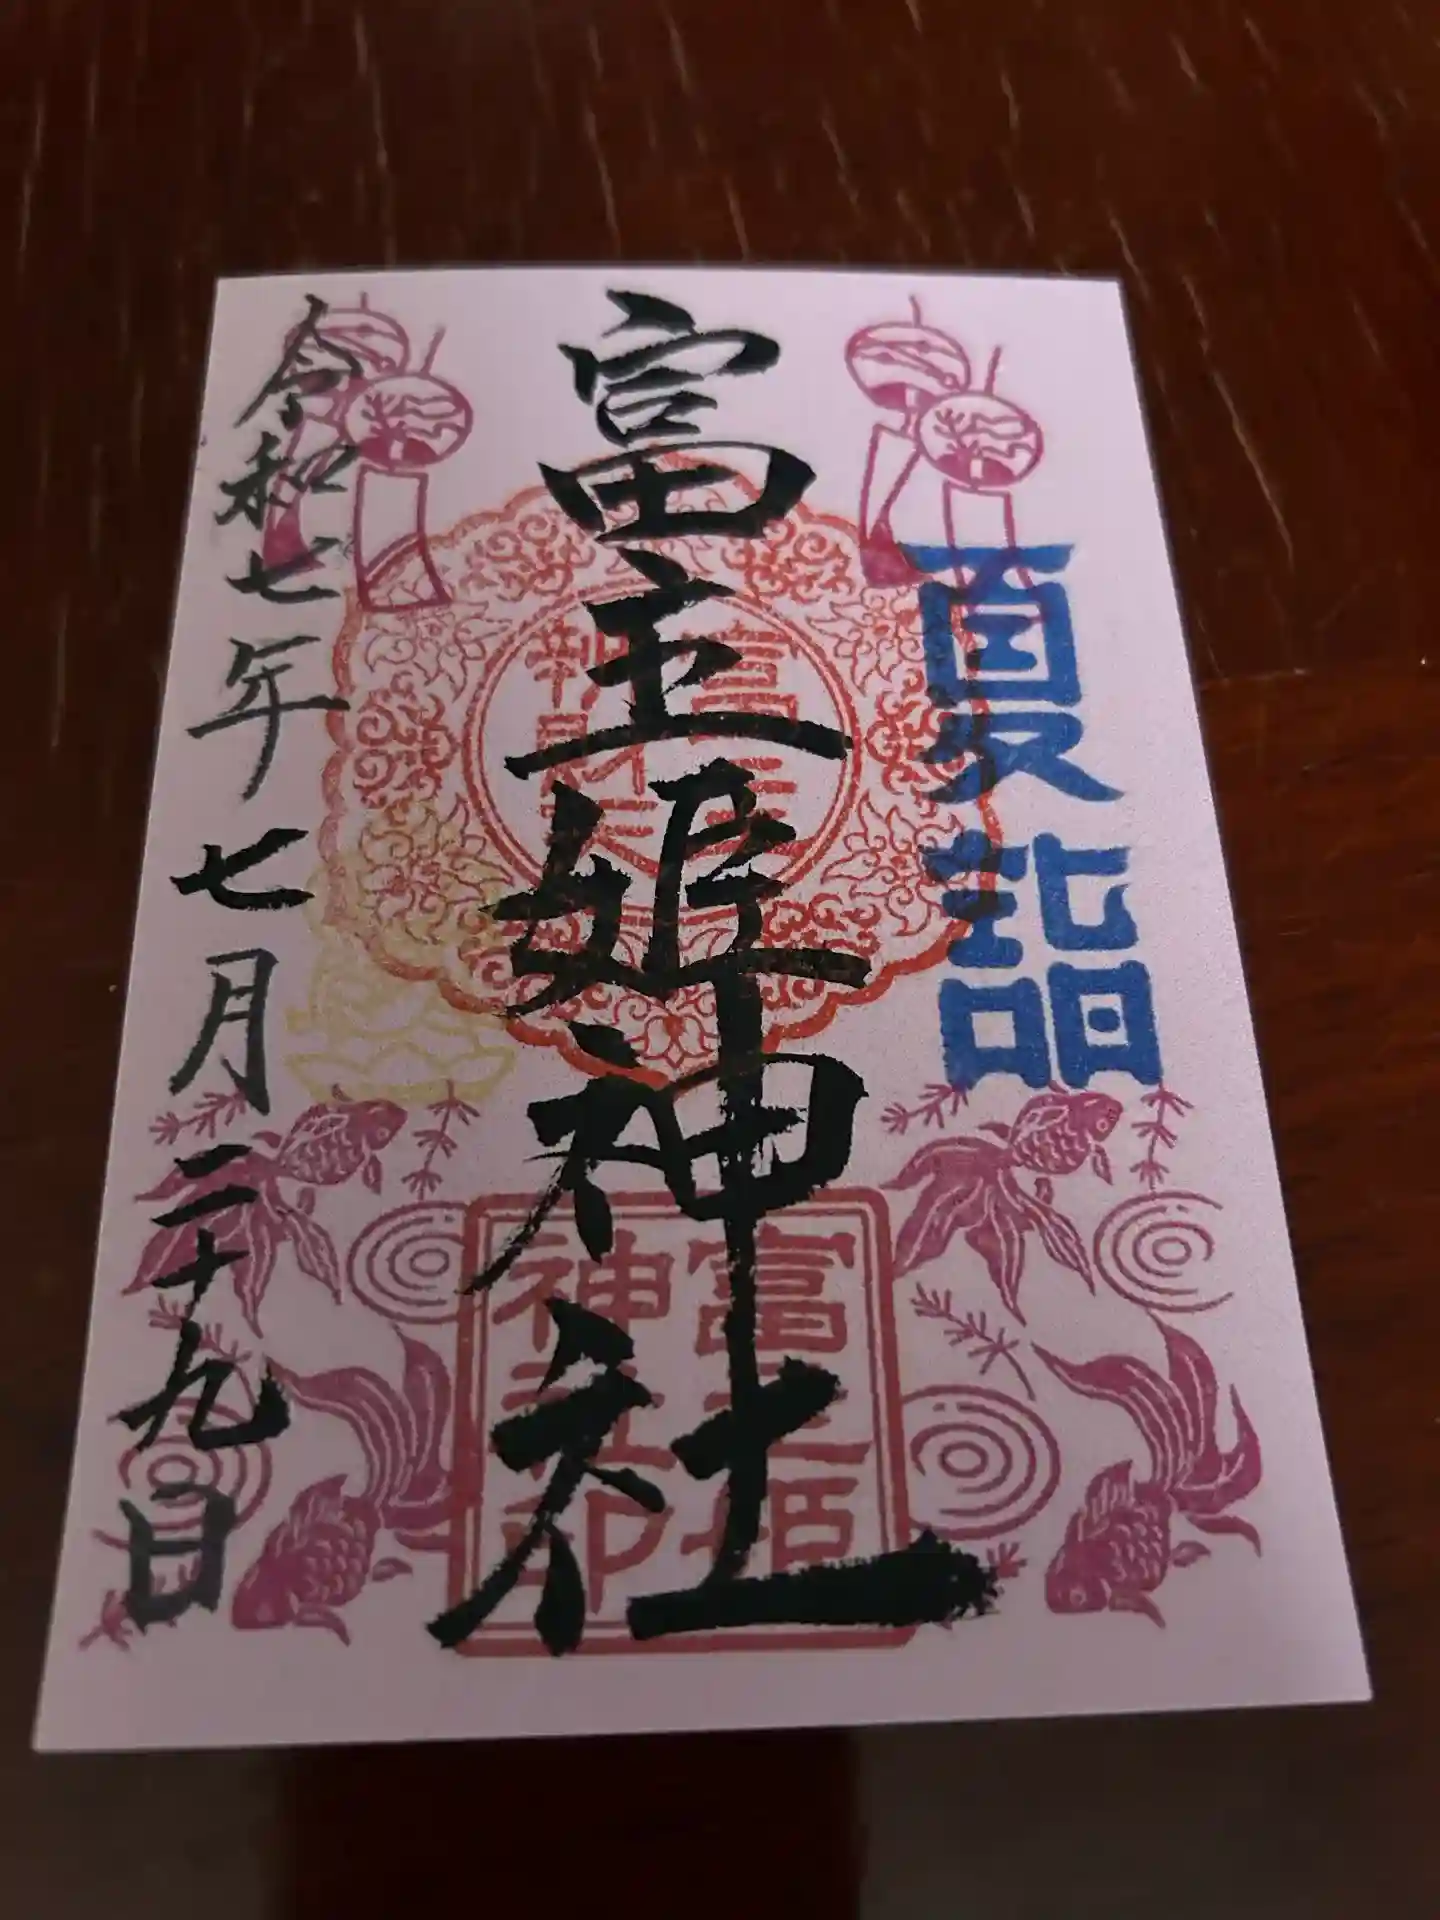 夏詣
富主姫神社
富主姫
神社印
令和七年七月二十九日